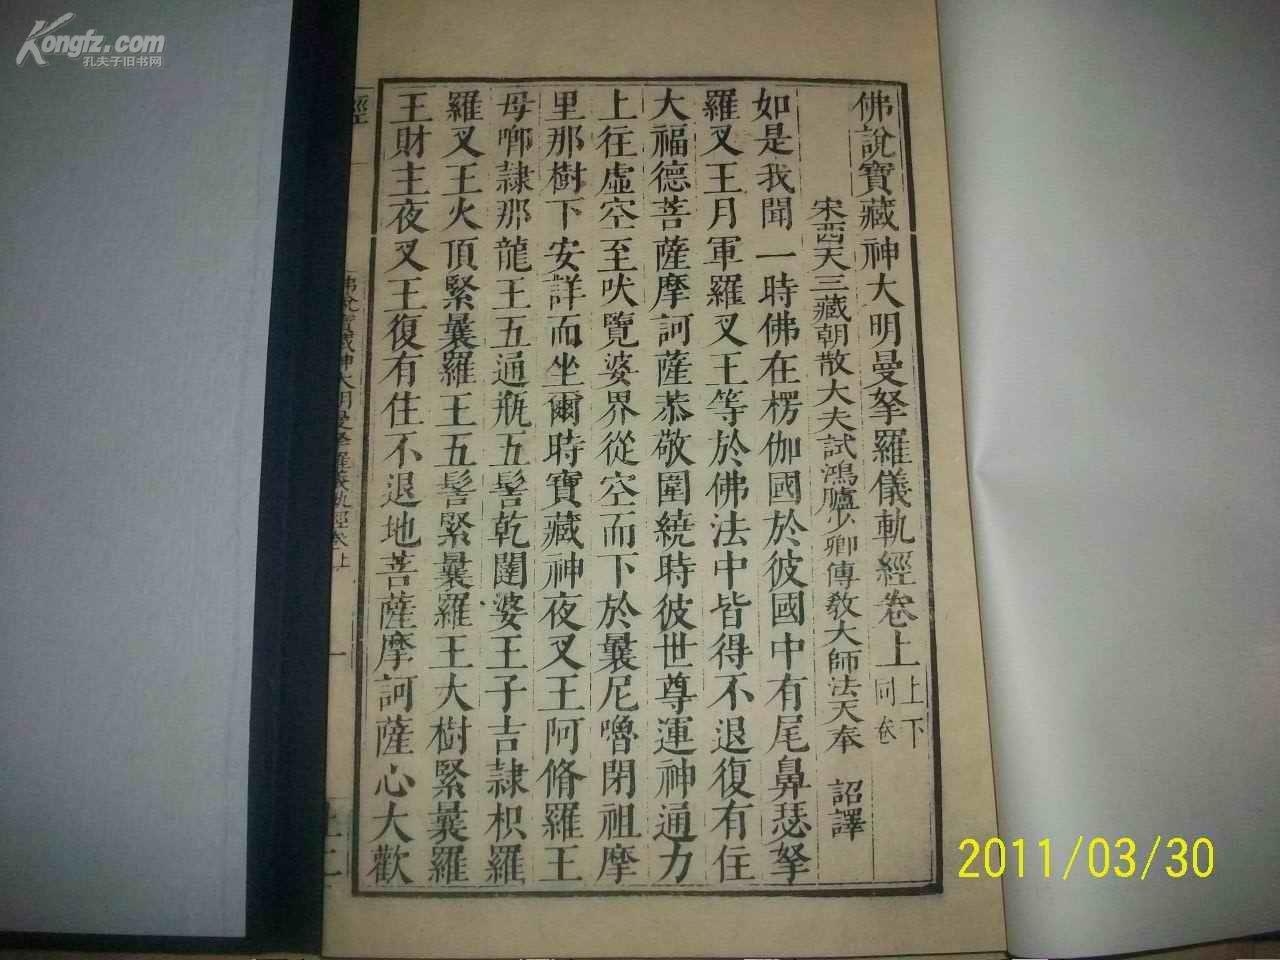 佛說寶藏神大明曼拏羅儀軌經卷上 上下同卷
宋西天三藏朝散大夫試鴻臚少卿傳教大師法天奉 詔譯
如是我聞一時佛在楞伽國於彼國中有尾鼻瑟拏
羅叉王月軍羅叉王等於佛法中皆得不退復有住
大福德菩薩摩訶薩恭敬圍繞時彼世尊運神通力
上往虛空至吠覽婆界從空而下於曩尼嚕閉祖摩
里那樹下安詳而坐爾時寶藏神夜叉王阿脩羅王
母啷隷那龍王五通瓶五髻乾闥婆王子吉隷枳羅
羅叉王火頂緊曩羅王五髻緊曩羅王大樹緊曩羅
王財主夜叉王復有住不退地菩薩摩訶薩心大歡
經
佛說寶藏神大明曼拏羅儀軌經卷上
一
Kongfz.com
孔夫子旧书网
2011/03/30